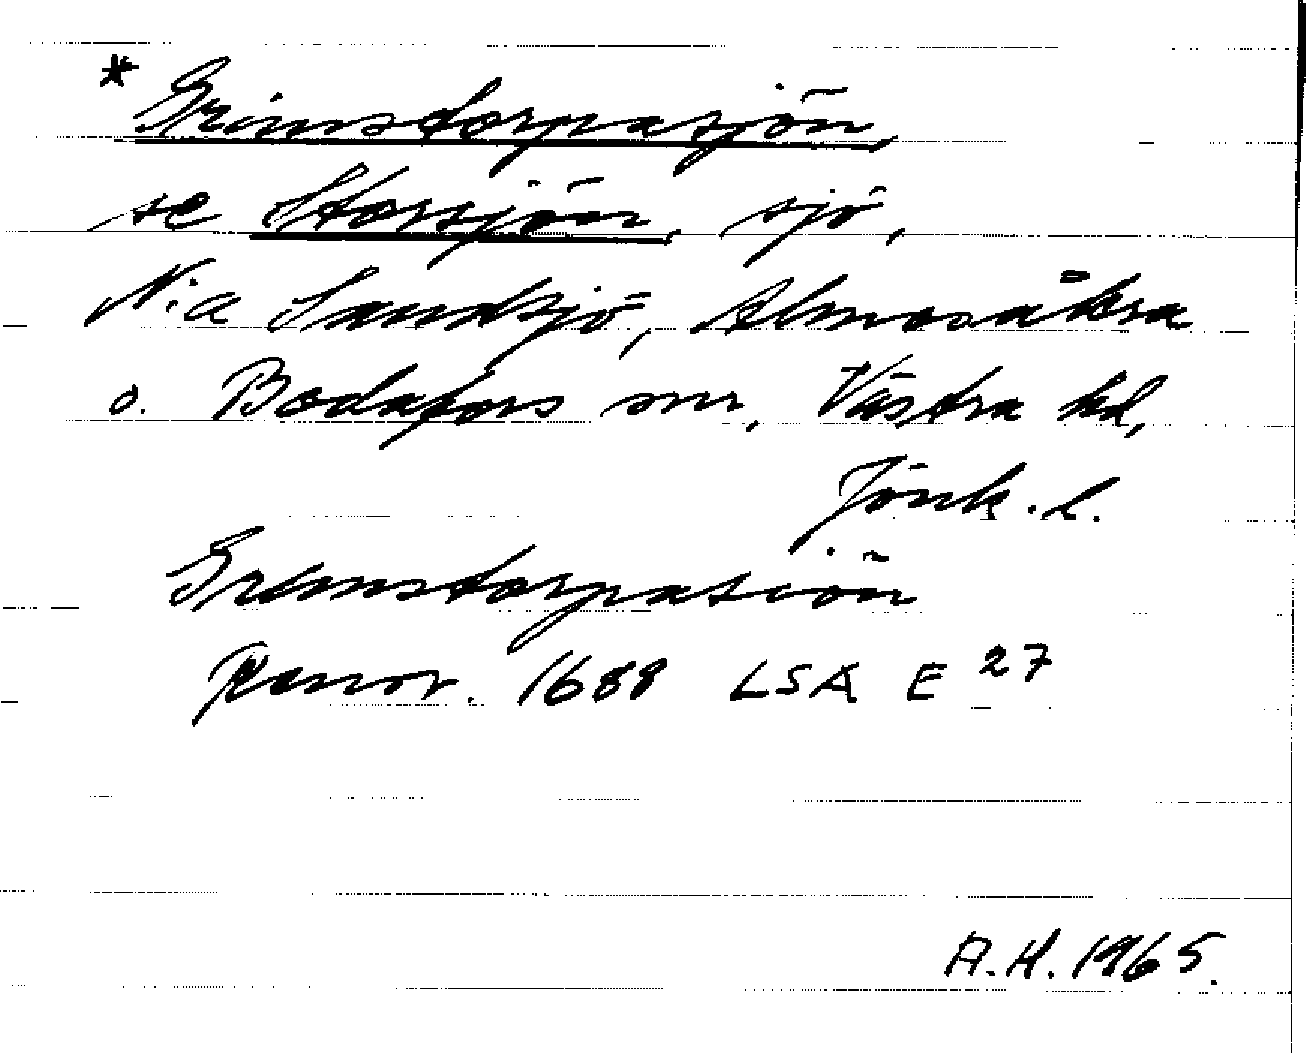 * Grimstorpasjön,
se Storsjön, sjö,
N:a Sandsjö, Almesåkra
o. Bodafors snr, Västra hd,
Jönk. l.
Gremstorpasiön
Rannr. 1688 LSA E 27
A.H. 1965.